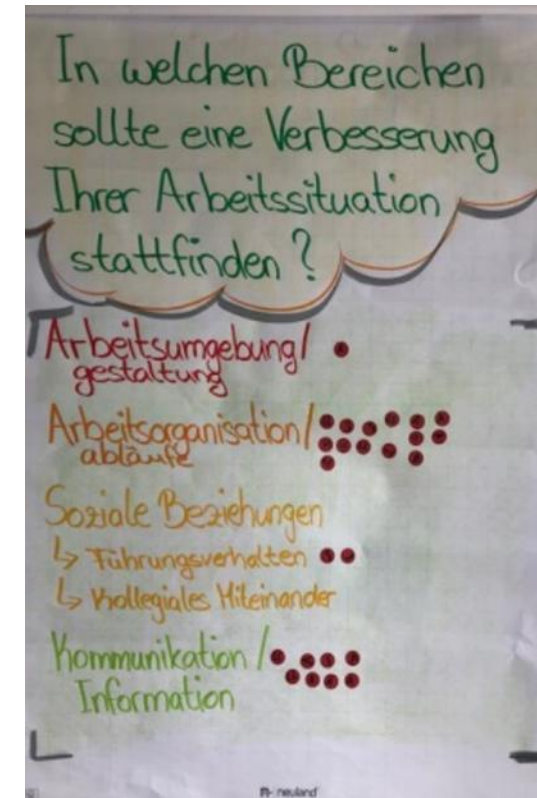 In welchen Bereichen
sollte eine Verbesserung
Ihrer Arbeitssituation
stattfinden?
Arbeitsumgebung/
gestaltung
Arbeitsorganisation/
abläufe
Soziale Beziehungen
↳ Führungsverhalten
↳ Kollegiales Miteinander
Kommunikation/
Information
neuland